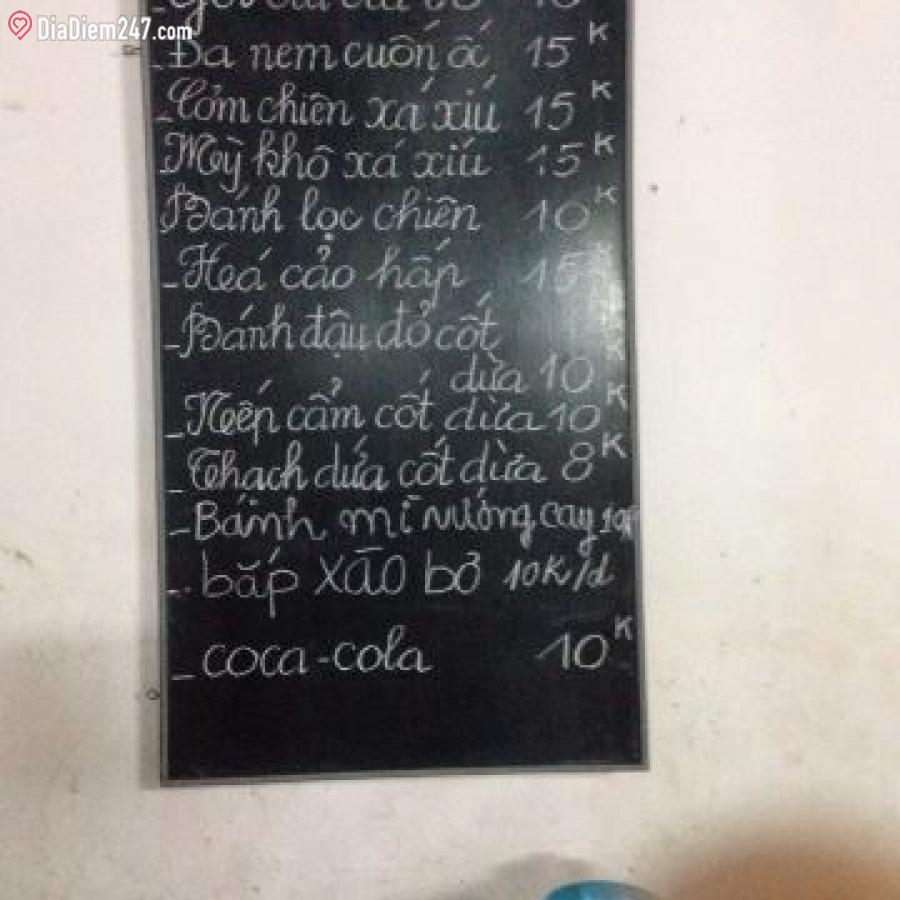 DiaDiem247.com
- Da nem cuốn ốc 15K
- Cơm chiên xá xíu 15K
- Mỳ khô xá xíu 15K
- Bánh lọc chiên 10K
- Há cảo hấp 15K
- Bánh đậu đỏ cốt
dừa 10K
- Nếp cẩm cốt dừa 10K
- Thạch dứa cốt dừa 8K
- Bánh mì nướng cay
- bắp xào bơ 10K/d
- coca-cola 10K